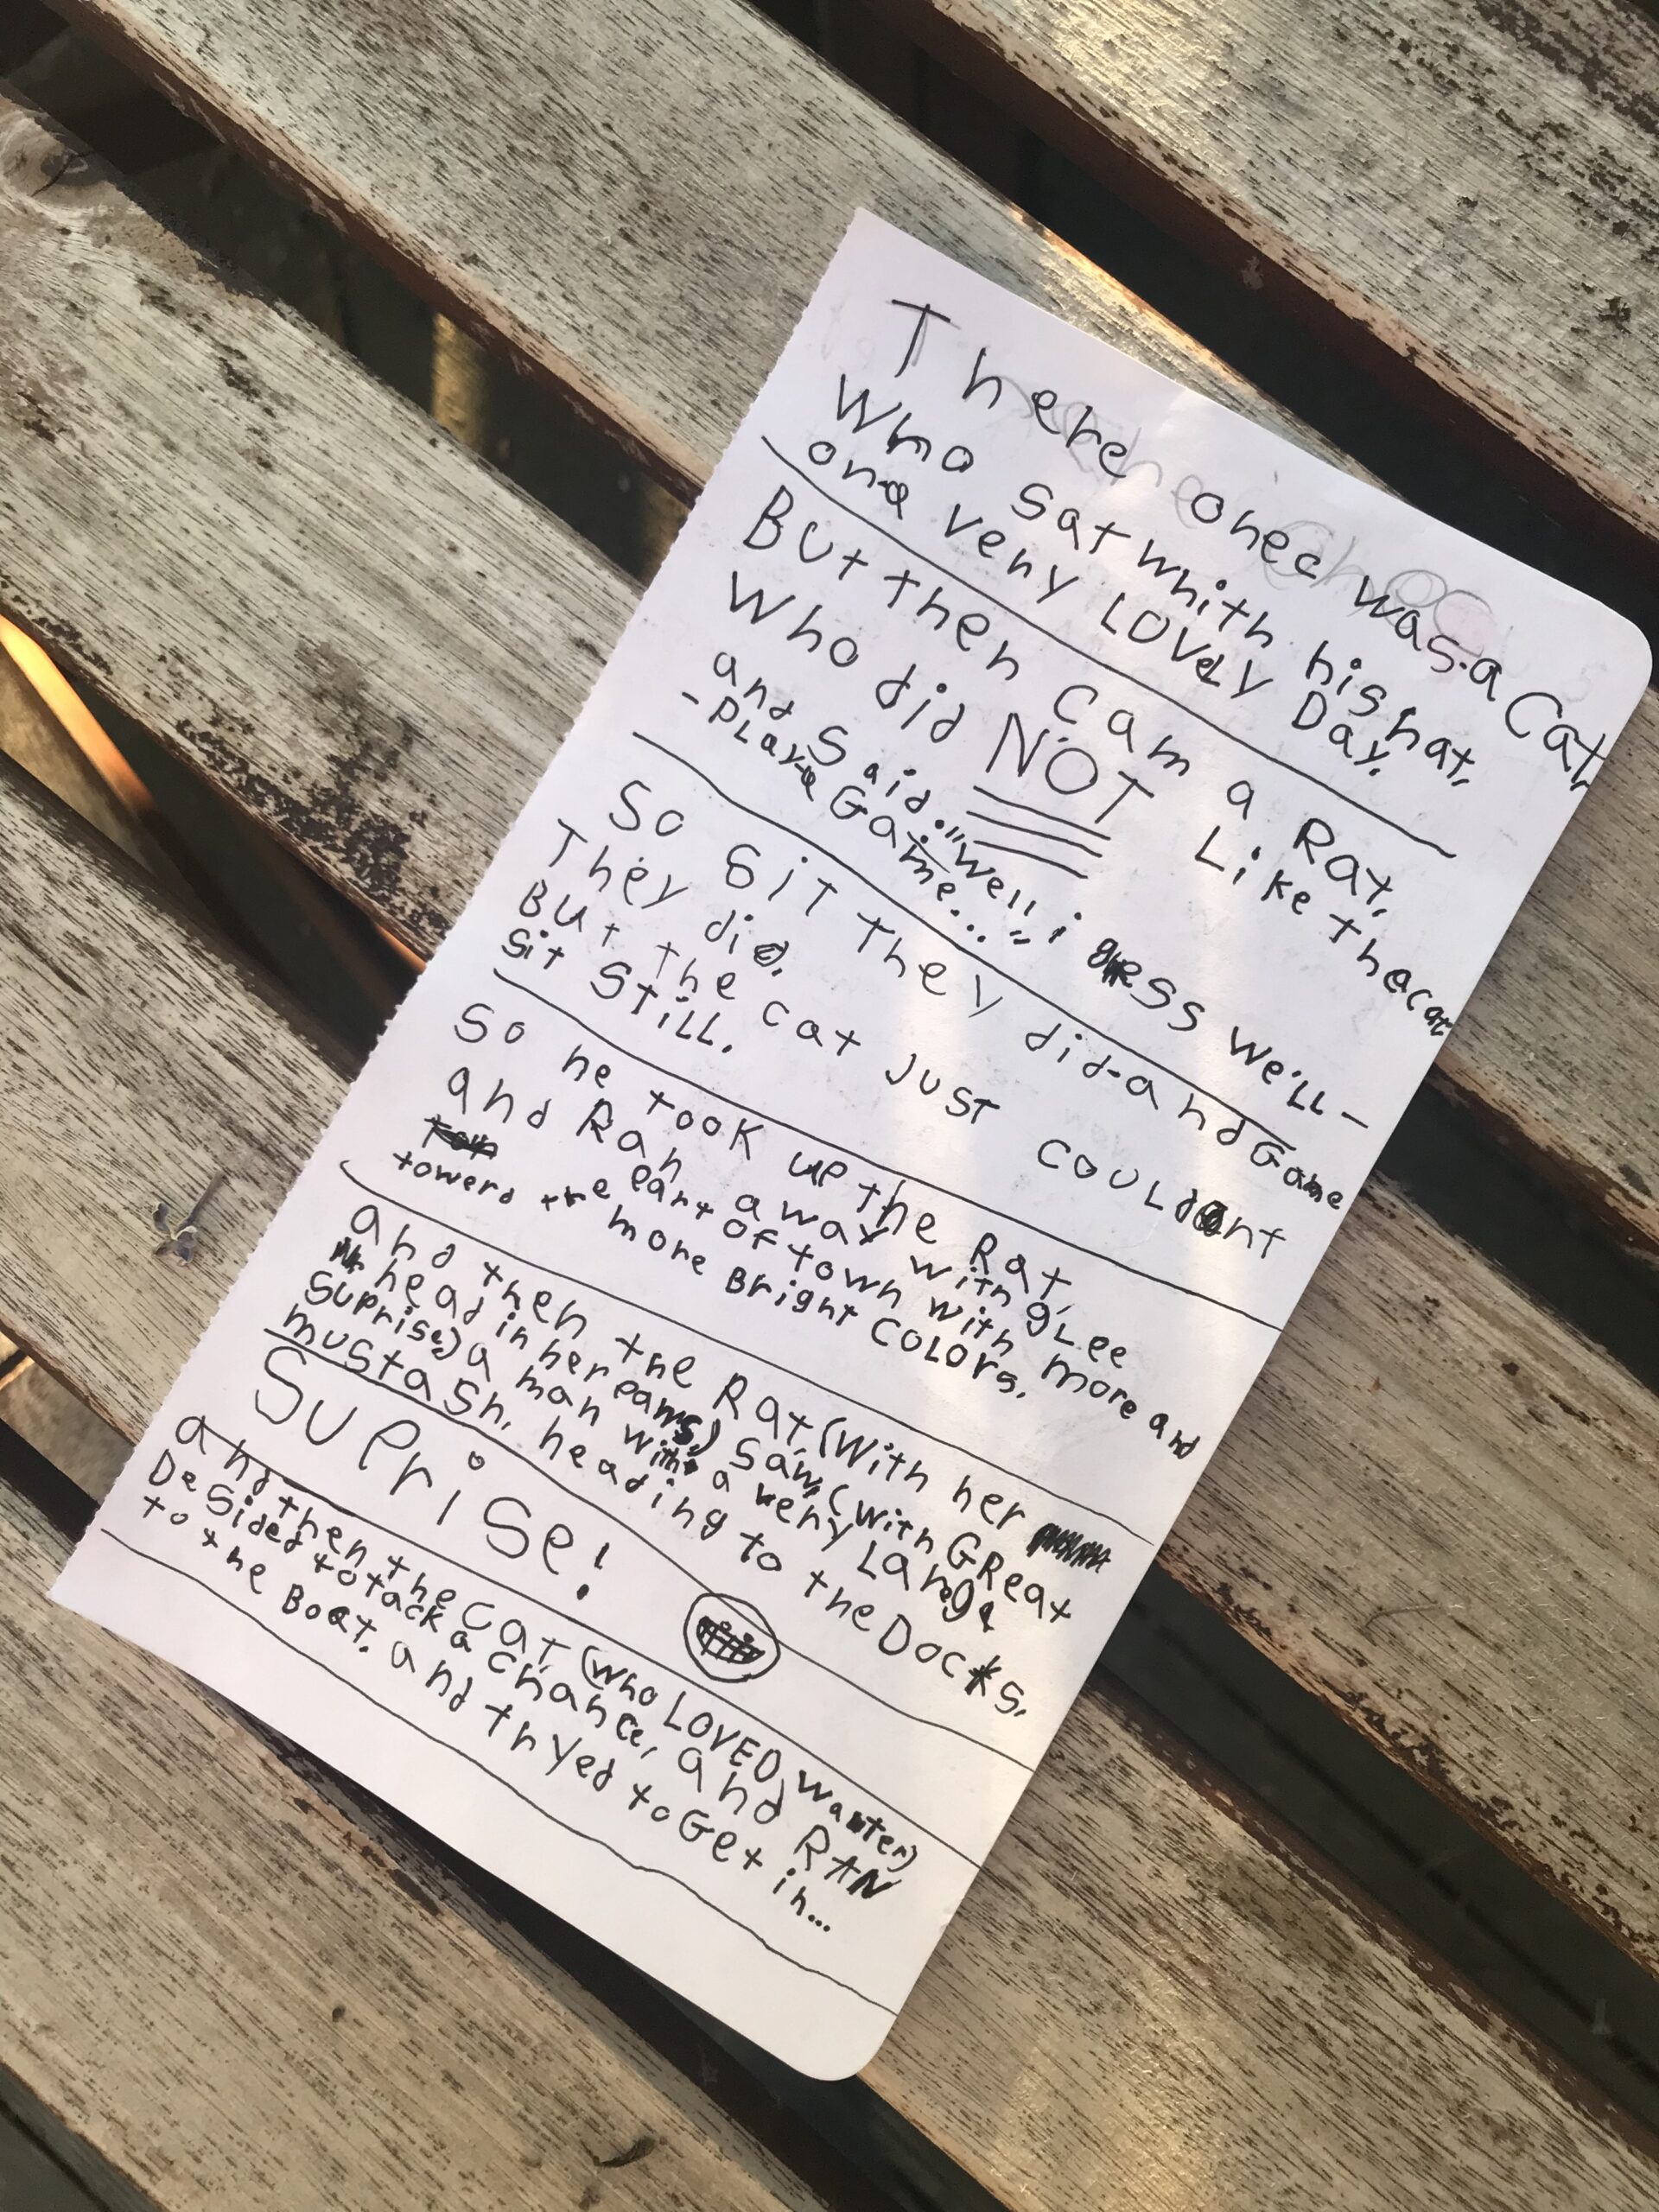 There onec was a Cat,
Who sat whith his hat,
on a very LOVELY Day.
BUt then Cam a Rat,
Who did NOT Like the cat
and Said: "Well i guess We'LL -
- PLay a Game..."
So Sit They did - and Game
They did,
BUt the cat JUST COULdnt
Sit STiLL.
So he took up the Rat,
and Ran away with gLee
towerd the part OF town with more and
more Bright COLOrs.
and then the Rat, (With her
head in her pams,) Saw, (With GReat
Suprise,) a man with a very Large
mustash, heading to the Docks,
SuPriSe!
and then the Cat, (who LOVED wanter)
DeSided to tack a Chance, and RAN
to the Boat. and tryed to Get in...